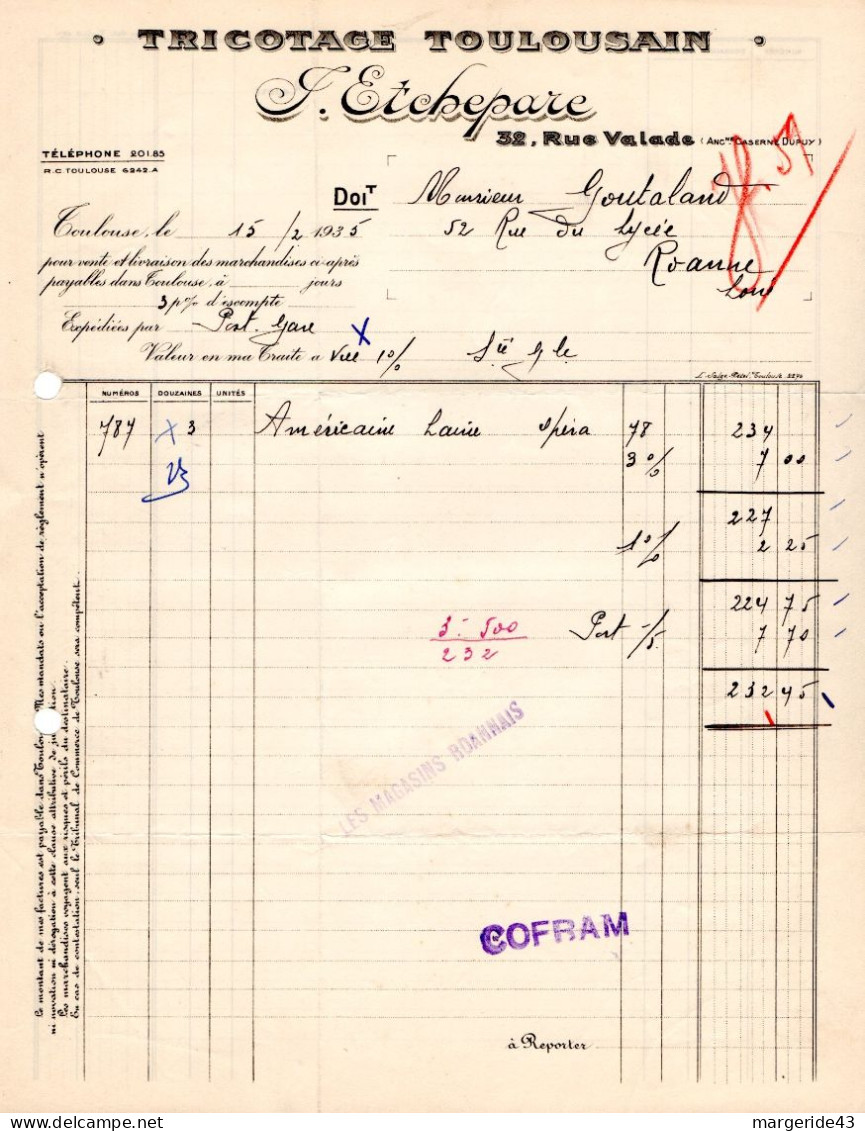 TRICOTAGE TOULOUSAIN
J. Etchepare
32, Rue Valade (ANCne CASERNE DUPUY)
TÉLÉPHONE 201.85
R.C. TOULOUSE 6242.A
DOIT Monsieur Goutaland
52 Rue du Lycée
Roanne
Loire
Toulouse, le 15/2 1935
pour vente et livraison des marchandises ci-après
payables dans Toulouse, à jours
3 p% d'escompte
Expédiées par Port. Gare X
Valeur en ma Traite à Vue 1% Sté Gle
NUMÉROS DOUZAINES UNITÉS
787 X 3 Américaine Laine Opéra 78 234
3% 7 00
23
227
1% 2 25
224 75
Port 7 70
3 - 500
232
232 45
LES MAGASINS ROANNAIS
COFRAM
à Reporter
Le montant de mes factures est payable dans Toulouse. Mes mandats ou l'acceptation de règlement n'opèrent
ni novation ni dérogation à cette clause attributive de juridiction.
Les marchandises voyagent aux risques et périls du destinataire.
En cas de contestation, seul le Tribunal de Commerce de Toulouse sera compétent.
margeride43